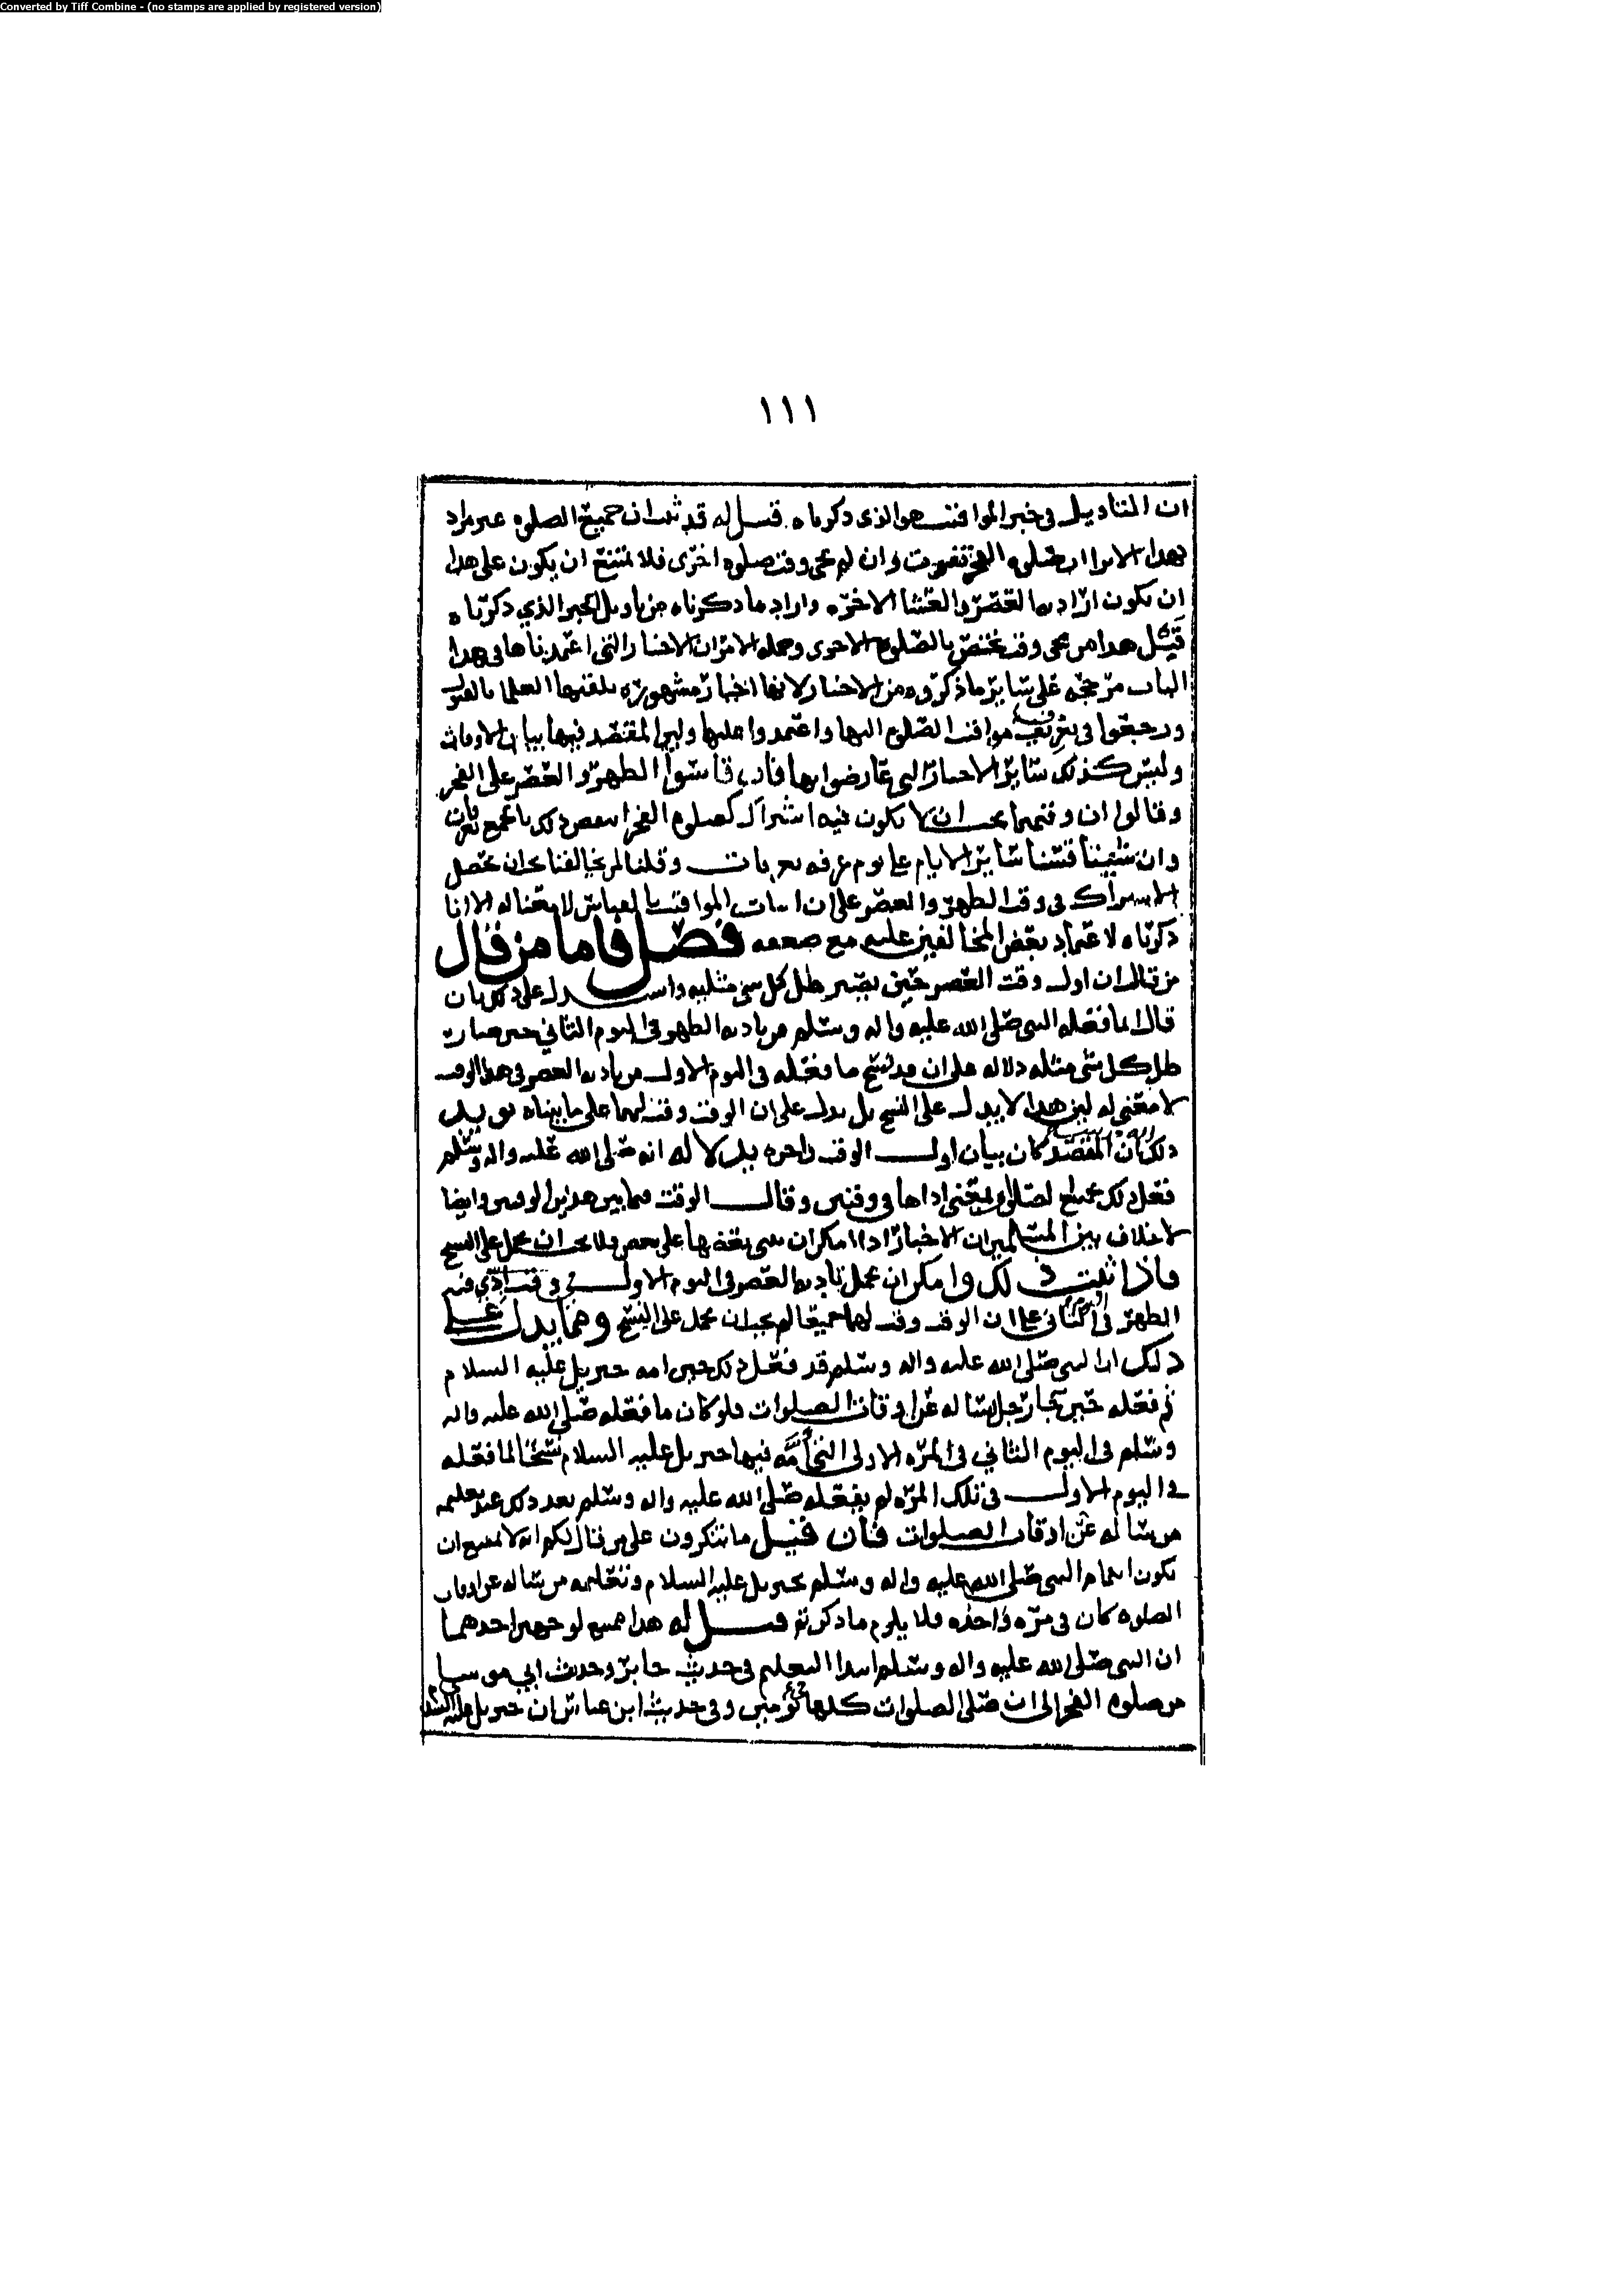 Converted by Tiff Combine - (no stamps are applied by registered version)
١١١
ان التاويل في خبر المواقيت هو الذي ذكرناه قيل له قد ثبت ان جميع الصلوه غير مراد
بهذا الامر ان صلوه الفجر تفوت وان لم يجي وقت صلوه اخرى فلا يمتنع ان يكون على هذا
ان يكون اراد به العصر والعشا الاخره واراد ما ذكرناه من تاويل الخبر الذي ذكرناه
قيل هذا من يجي وقت يختص بالصلوه الاخرى وجمله الامر ان الاخبار التي اعتمدناها في هذا
الباب مرجحه على ساير ما ذكروه من الاخبار لانها اخبار مشهوره تلقتها العلما بالقبول
ورجعوا في تعريف مواقيت الصلوه اليها واعتمدوا عليها وليس المقصد فيها بيان الاوقات
وليس كذلك ساير الاخبار التي عارضوا بها فان قاسوا الظهر والعصر على الفجر
وقالوا ان وقتهما يجب ان لا يكون فيه اشتراك كصلوه الفجر انتقض ذلك بالجمع بعرفات
وان شينا قسنا ساير الايام على يوم عرفه بعرفات وقلنا لمن خالفنا يجب ان يحصل
الاشتراك في وقت الظهر والعصر على ان اثبات المواقيت بالقياس لا معنا له الا انا
ذكرناه لاعتماد بعض المخالفين عليه مع ضعفه فصل فاما من قال
من قال ان اول وقت العصر حين يصير ظل كل شي مثليه واستدل على ذلك بان
قال لما فعله النبي صلى الله عليه واله وسلم من تاديه الظهر في اليوم الثاني حين صار
ظل كل شي مثله دلاله على ان قد نسخ ما فعله في اليوم الاول من تاديه العصر في هذا الوقت
لا معنى له لان هذا لا يدل على النسخ بل يدل على ان الوقت وقت لهما على ما بيناه يويد
ذلك ان المقصد كان بيان اول الوقت واخره بدلاله انه صلى الله عليه واله وسلم
فعل ذلك بجميع الصلوه بمعنى اداها في وقتين وقال الوقت فيما بين هذين الوقتين وايضا
لا خلاف بين المسلمين ان الاخبار اذا امكن ان يبنى بعضها على بعض فلا يجب ان يحمل على النسخ
فاذا ثبت ذلك وامكن ان يحمل تاديه العصر في اليوم الاول في وقت ادي فيه
الظهر في الثاني على ان الوقت وقت لهما جميعا لم يجب ان يحمل على النسخ ومما يدل على
ذلك ان النبي صلى الله عليه واله وسلم قد فعل ذلك حين امه جبريل عليه السلام
ثم فعله حين جا رجل يساله عن اوقات الصلوات فلو كان ما فعله صلى الله عليه واله
وسلم في اليوم الثاني في المره الاولى التي امه فيها جبريل عليه السلام نسخا لما فعله
في اليوم الاول في تلك المره لم يفعله صلى الله عليه واله وسلم بعد ذلك عند تعليمه
من ساله عن اوقات الصلوات فان قيل ما تنكرون على من قال لكم انه لا يمتنع ان
يكون ايتمام النبي صلى الله عليه واله وسلم بجبريل عليه السلام وتعليمه من ساله عن اوقات
الصلوه كان في مره واحده فلا يلزم ما ذكرتم قيل له هذا ممتنع لوجهين احدهما
ان النبي صلى الله عليه واله وسلم ابتدا التعليم في حديث جابر وحديث ابي موسى
من صلوه الفجر الى ان صلى الصلوات كلها يومين وفي حديث ابن عباس ان جبريل عليه السلم